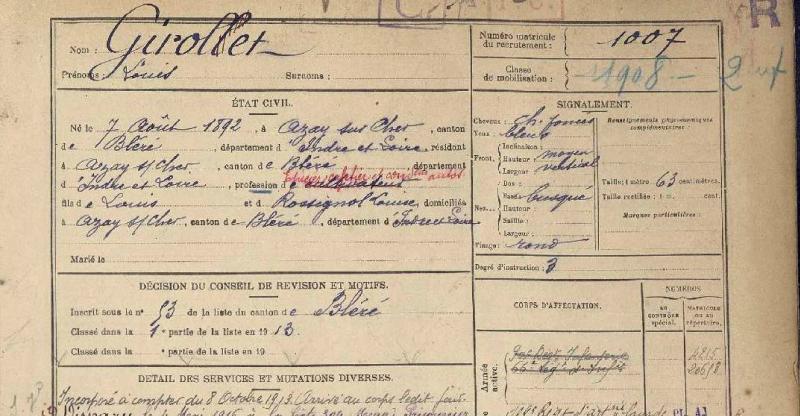 Nom : Girollet
Prénoms : Louis Surnoms :
Numéro matricule du recrutement : 1007
Classe de mobilisation : 1908 -
ÉTAT CIVIL.
Né le 7 Août 1892, à Azay sur Cher, canton
de Bléré, département d'Indre et Loire, résidant
à Azay s/Cher, canton de Bléré, département
d'Indre et Loire, profession de cultivateur
fils de Louis et d Rossignol Louise, domiciliés
à Azay s/Cher, canton de Bléré, département d'Indre et Loire
Marié le
SIGNALEMENT.
Cheveux : ch. foncés
Yeux : bleus
Front. Inclinaison :
Hauteur : moyen
Largeur : vertical
Nez. Dos :
Base : busqué
Hauteur :
Saillie :
Largeur :
Visage : rond
Renseignements physionomiques complémentaires :
Taille : 1 mètre 63 centimètres.
Taille rectifiée : 1 m. cent.
Marques particulières :
Degré d'instruction : 3
DÉCISION DU CONSEIL DE REVISION ET MOTIFS.
Inscrit sous le n° 53 de la liste du canton de Bléré
Classé dans la 1e partie de la liste en 1913.
Classé dans la partie de la liste en 19
DÉTAIL DES SERVICES ET MUTATIONS DIVERSES.
Incorporé à compter du 8 Octobre 1913. Arrivé au corps ledit jour.
CORPS D'AFFECTATION.
NUMÉROS
AU CONTRÔLE spécial.
MATRICULE OU AU répertoire.
Armée active.
66e Rég. d'Inf.